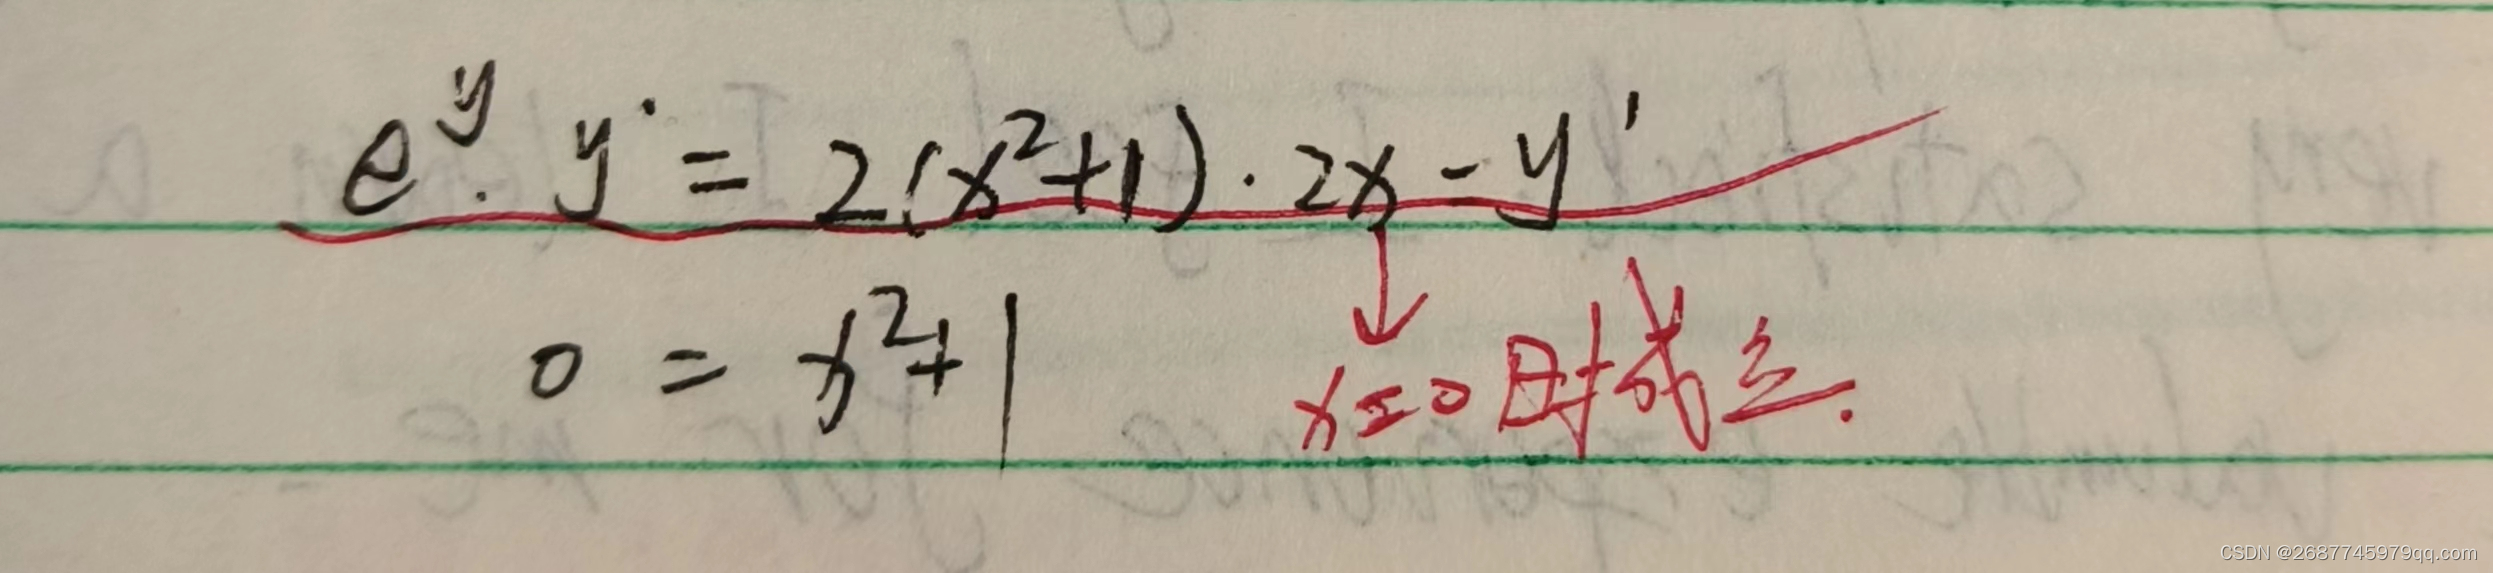 e^y · y' = 2(x²+1) · 2x - y'
0 = x²+1
x=0时成立.
CSDN @2687745979qq.com